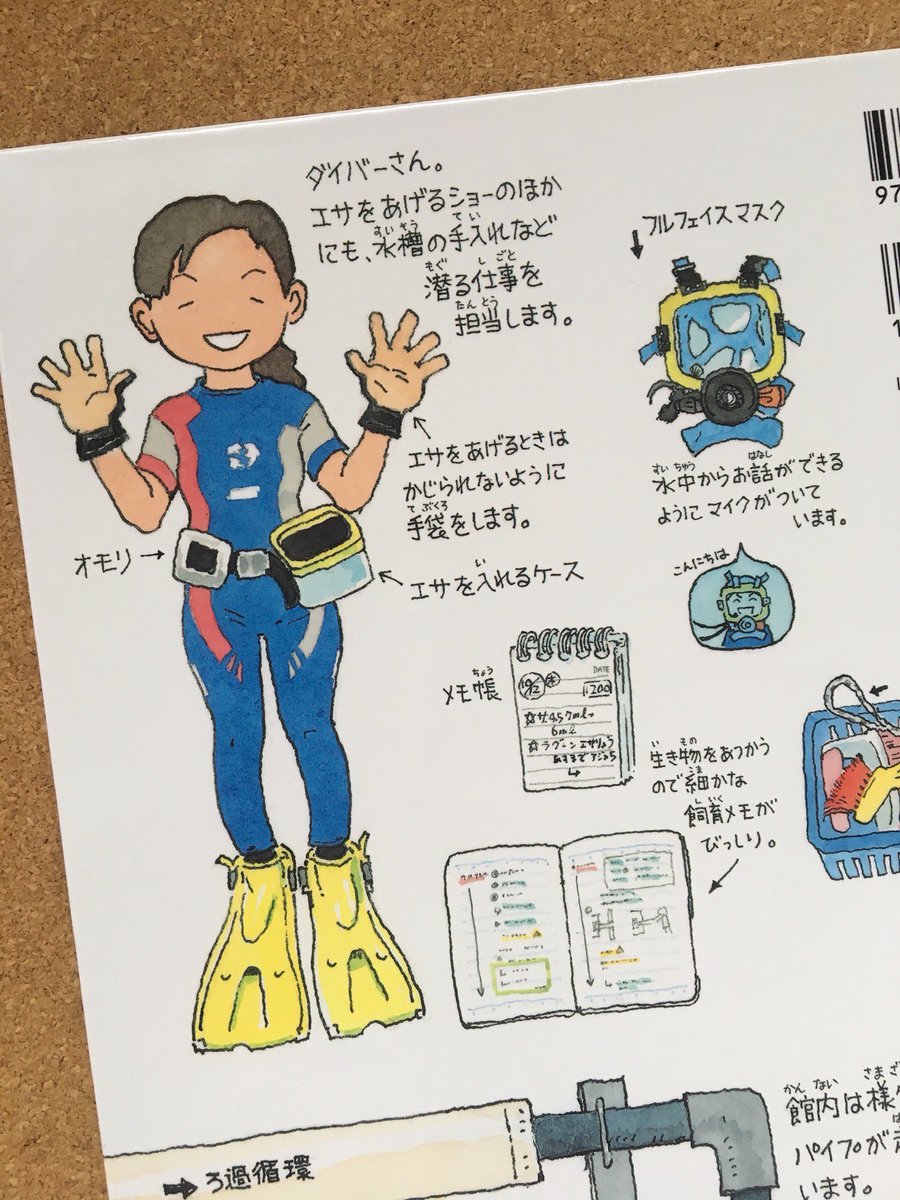 ダイバーさん。
エサをあげるショーのほか
にも、水槽の手入れなど
潜る仕事を
担当します。
フルフェイスマスク
水中からお話ができる
ようにマイクがついて
います。
こんにちは
エサをあげるときは
かじられないように
手袋をします。
オモリ
エサを入れるケース
メモ帳
DATE
生き物をあつかう
ので細かな
飼育メモが
びっしり。
97
館内は様
パイプが
います。
ろ過循環